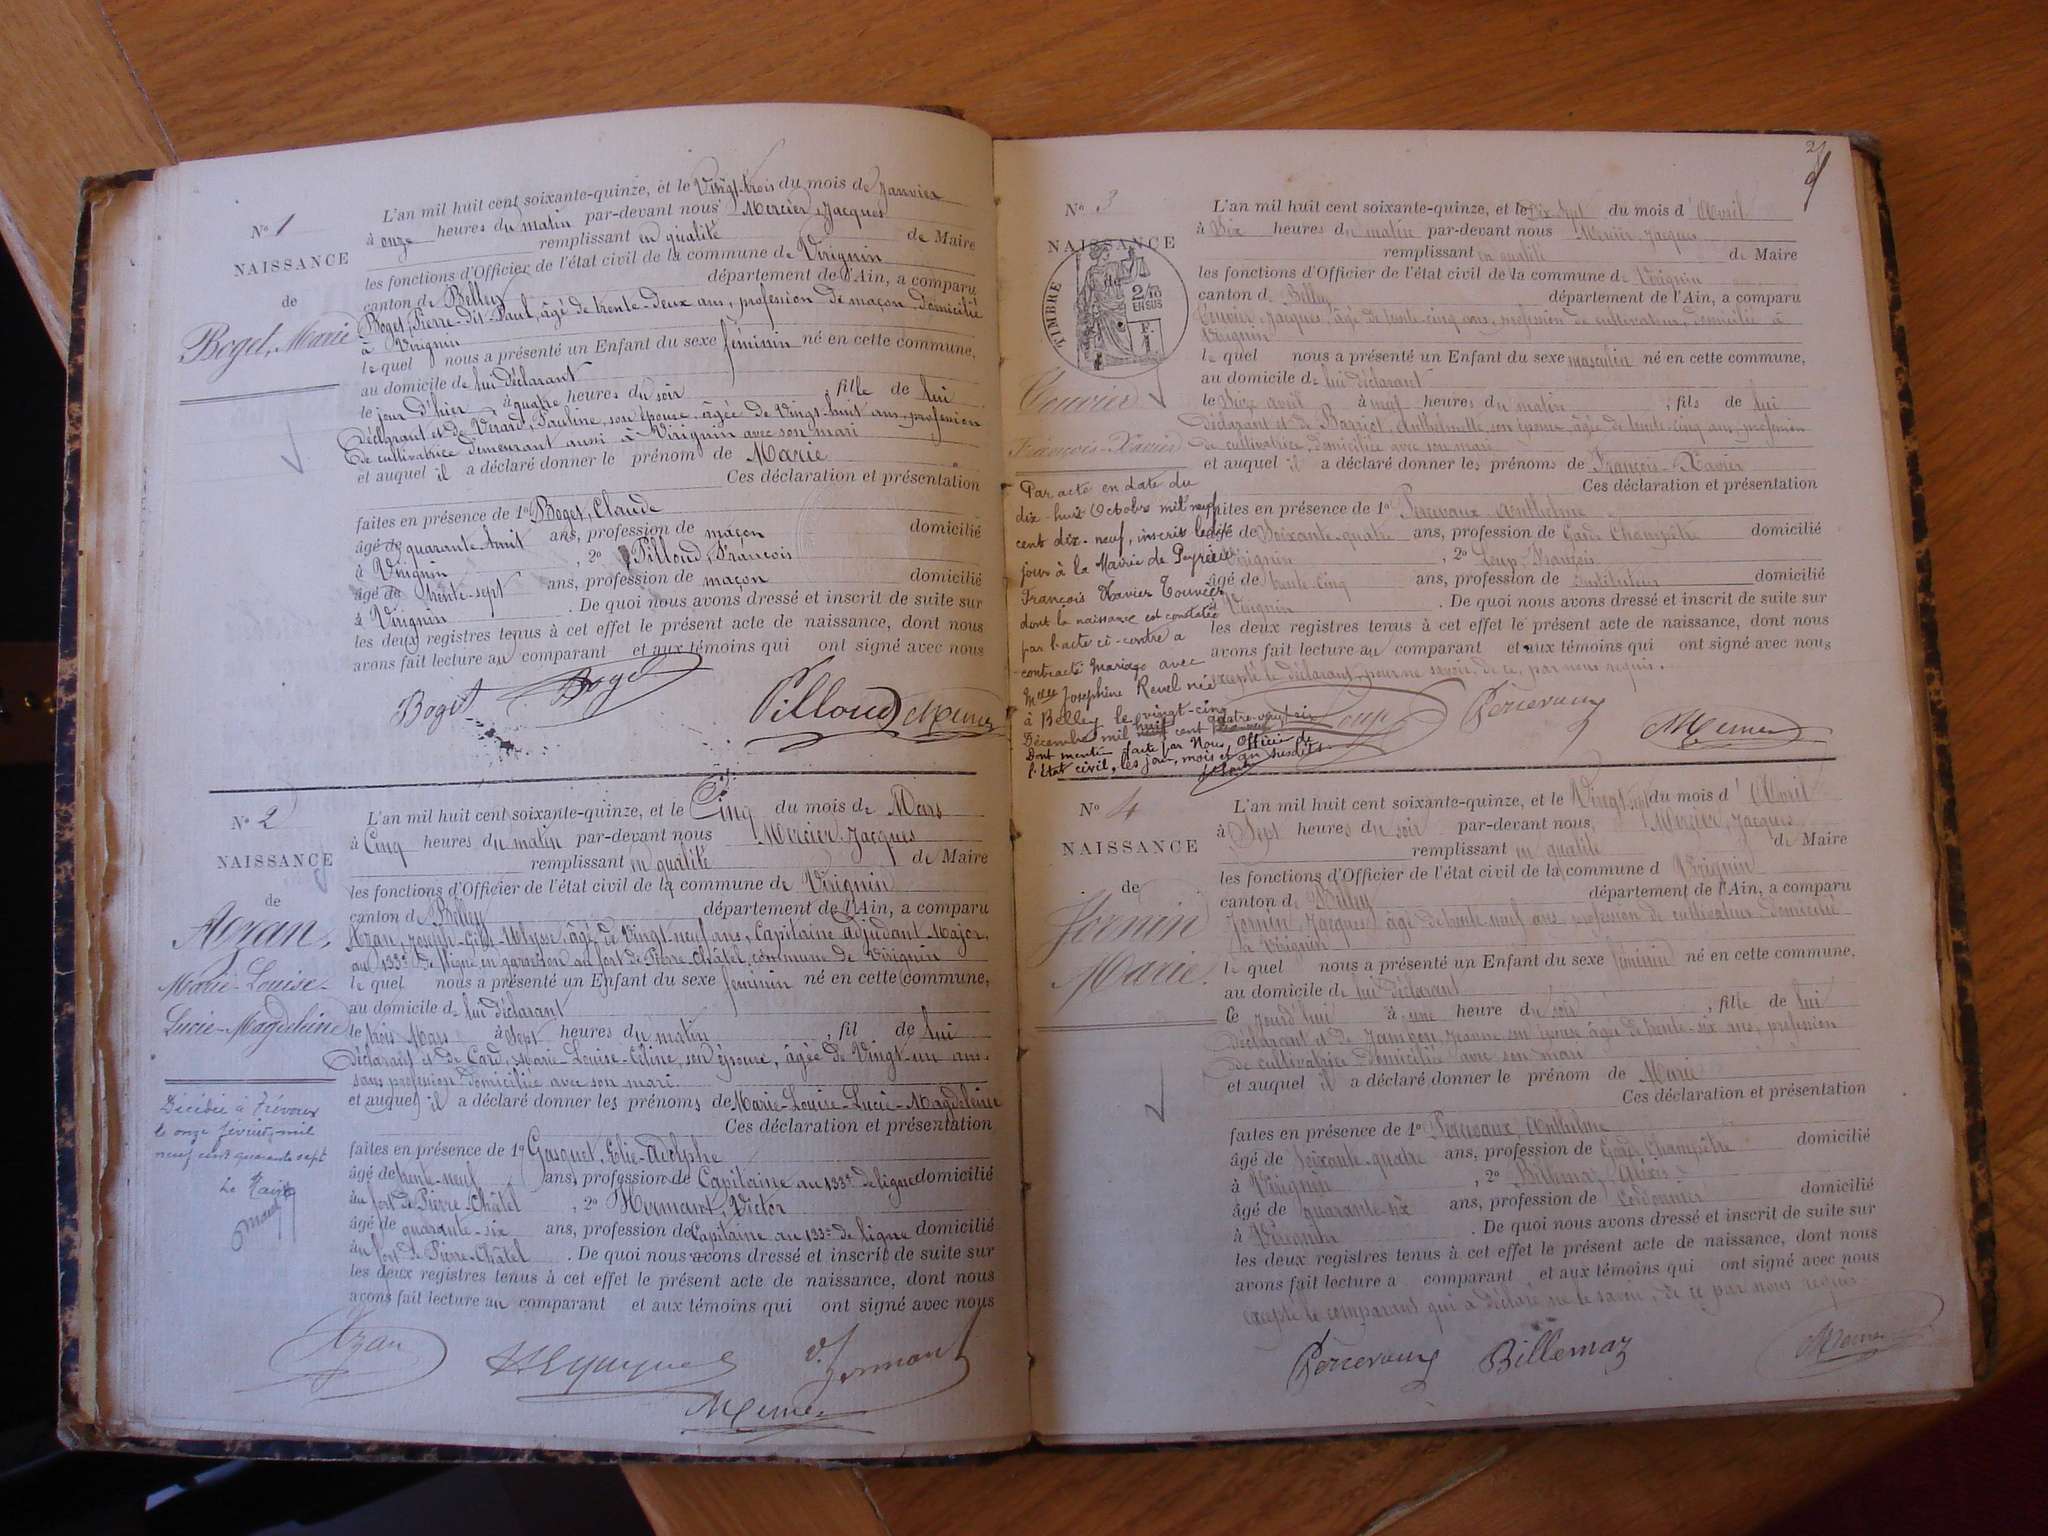 N° 1
NAISSANCE
de
Boget, Marie
L'an mil huit cent soixante-quinze, et le Vingt-trois du mois de Janvier
à onze heures du matin par-devant nous Mercier, Jacques
remplissant en qualité de Maire
les fonctions d'Officier de l'état civil de la commune de Virignin
canton de Belley département de l'Ain, a comparu
Boget, Pierre-dit-Paul, âgé de trente-deux ans, profession de maçon, domicilié
à Virignin
lequel nous a présenté un Enfant du sexe féminin né en cette commune,
au domicile de lui déclarant
le jour d'hier, à quatre heures du soir, fille de lui
déclarant et de Verard, Pauline, son épouse, âgée de Vingt-huit ans, profession
de cultivatrice demeurant aussi à Virignin avec son mari
et auquel il a déclaré donner le prénom de Marie
Ces déclaration et présentation
faites en présence de 1° Boget, Claude
âgé de quarante-huit ans, profession de maçon domicilié
à Virignin, 2° Pilloud, François
âgé de trente-sept ans, profession de maçon domicilié
à Virignin. De quoi nous avons dressé et inscrit de suite sur
les deux registres tenus à cet effet le présent acte de naissance, dont nous
avons fait lecture au comparant et aux témoins qui ont signé avec nous
Boget Boget Pilloud Mercier
N° 2
NAISSANCE
de
Azan,
Marie-Louise-
Lucie-Magdeleine
Décédée à Trévoux
le onze février mil
neuf cent quarante sept
Le Maire
L'an mil huit cent soixante-quinze, et le Cinq du mois de Mars
à Cinq heures du matin par-devant nous Mercier, Jacques
remplissant en qualité de Maire
les fonctions d'Officier de l'état civil de la commune de Virignin
canton de Belley département de l'Ain, a comparu
Azan, Joseph-Ulysse, âgé de Vingt-neuf ans, Capitaine adjudant Major,
au 133e de ligne en garnison au fort de Pierre-Châtel, commune de Virignin
lequel nous a présenté un Enfant du sexe féminin né en cette commune,
au domicile de lui déclarant
le trois Mars à Sept heures du matin, fil de lui
déclarant et de Card, Marie-Louise-Céline, son épouse, âgée de Vingt-un ans,
sans profession domiciliée avec son mari.
et auquel il a déclaré donner les prénoms de Marie-Louise-Lucie-Magdeleine
Ces déclaration et présentation
faites en présence de 1° Gasquet, Elie-Adolphe
âgé de trente-neuf ans, profession de Capitaine au 133e de ligne domicilié
au fort de Pierre-Châtel, 2° Hermant, Victor
âgé de quarante-six ans, profession de Capitaine au 133e de ligne domicilié
au fort de Pierre-Châtel. De quoi nous avons dressé et inscrit de suite sur
les deux registres tenus à cet effet le présent acte de naissance, dont nous
avons fait lecture au comparant et aux témoins qui ont signé avec nous
Azan
V. Hermant
Mercier
2
N° 3
NAISSANCE
de
TIMBRE
2/10
EN SUS
Touvier
François-Xavier
Par acte en date du
dix-huit Octobre mil neuf
cent dix-neuf, inscrit le dit
jour à la Mairie de Peyrieu
François Xavier Touvier
dont la naissance est constatée
par l'acte ci-contre a
contracté Mariage avec
Melle Joséphine Revel née
à Belley le vingt-cinq
Décembre mil huit cent quatre-vingt
Dont mention faite par Nous, Officier de
l'Etat civil, les jour, mois et an susdits.
L'an mil huit cent soixante-quinze, et le Dix Sept du mois d'Avril
à Dix heures du matin par-devant nous Mercier, Jacques
remplissant en qualité de Maire
les fonctions d'Officier de l'état civil de la commune de Virignin
canton de Belley département de l'Ain, a comparu
Touvier, Jacques, âgé de trente-cinq ans, profession de cultivateur, domicilié à
Virignin
lequel nous a présenté un Enfant du sexe masculin né en cette commune,
au domicile de lui déclarant
le Seize avril à neuf heures du matin; fils de lui
déclarant et de Barriot, Anthelmette, son épouse, âgée de trente-cinq ans, profession
de cultivatrice, domiciliée avec son mari
et auquel il a déclaré donner les prénoms de François-Xavier
Ces déclaration et présentation
faites en présence de 1° Percevaux, Anthelme
âgé de Soixante-quatre ans, profession de Garde Champêtre domicilié
à Virignin, 2° Loup, François
âgé de trente-cinq ans, profession de instituteur domicilié
à Virignin. De quoi nous avons dressé et inscrit de suite sur
les deux registres tenus à cet effet le présent acte de naissance, dont nous
avons fait lecture au comparant et aux témoins qui ont signé avec nous
excepté le déclarant, pour ne savoir, de ce, par nous requis.
Loup Percevaux Mercier
N° 4
NAISSANCE
de
Jornin
Marie.
L'an mil huit cent soixante-quinze, et le Vingt sept du mois d'Avril
à Sept heures du soir par-devant nous, Mercier, Jacques
remplissant en qualité de Maire
les fonctions d'Officier de l'état civil de la commune d Virignin
canton de Belley département de l'Ain, a comparu
Jornin, Jacques, âgé de trente-neuf ans, profession de cultivateur domicilié
à Virignin
lequel nous a présenté un Enfant du sexe féminin né en cette commune,
au domicile de lui déclarant
Ce jourd'hui à une heure du soir, fille de lui
déclarant et de Jambon, Jeanne son épouse âgée de trente-six ans, profession
de cultivatrice domiciliée avec son mari
et auquel il a déclaré donner le prénom de Marie
Ces déclaration et présentation
faites en présence de 1° Percevaux, Anthelme
âgé de Soixante-quatre ans, profession de Garde Champêtre domicilié
à Virignin, 2° Billemaz, Alexis
âgé de quarante-six ans, profession de Cordonnier domicilié
à Virignin. De quoi nous avons dressé et inscrit de suite sur
les deux registres tenus à cet effet le présent acte de naissance, dont nous
avons fait lecture a comparant, et aux témoins qui ont signé avec nous
excepté le comparant qui a déclaré ne le savoir, de ce par nous requis.
Percevaux Billemaz Mercier